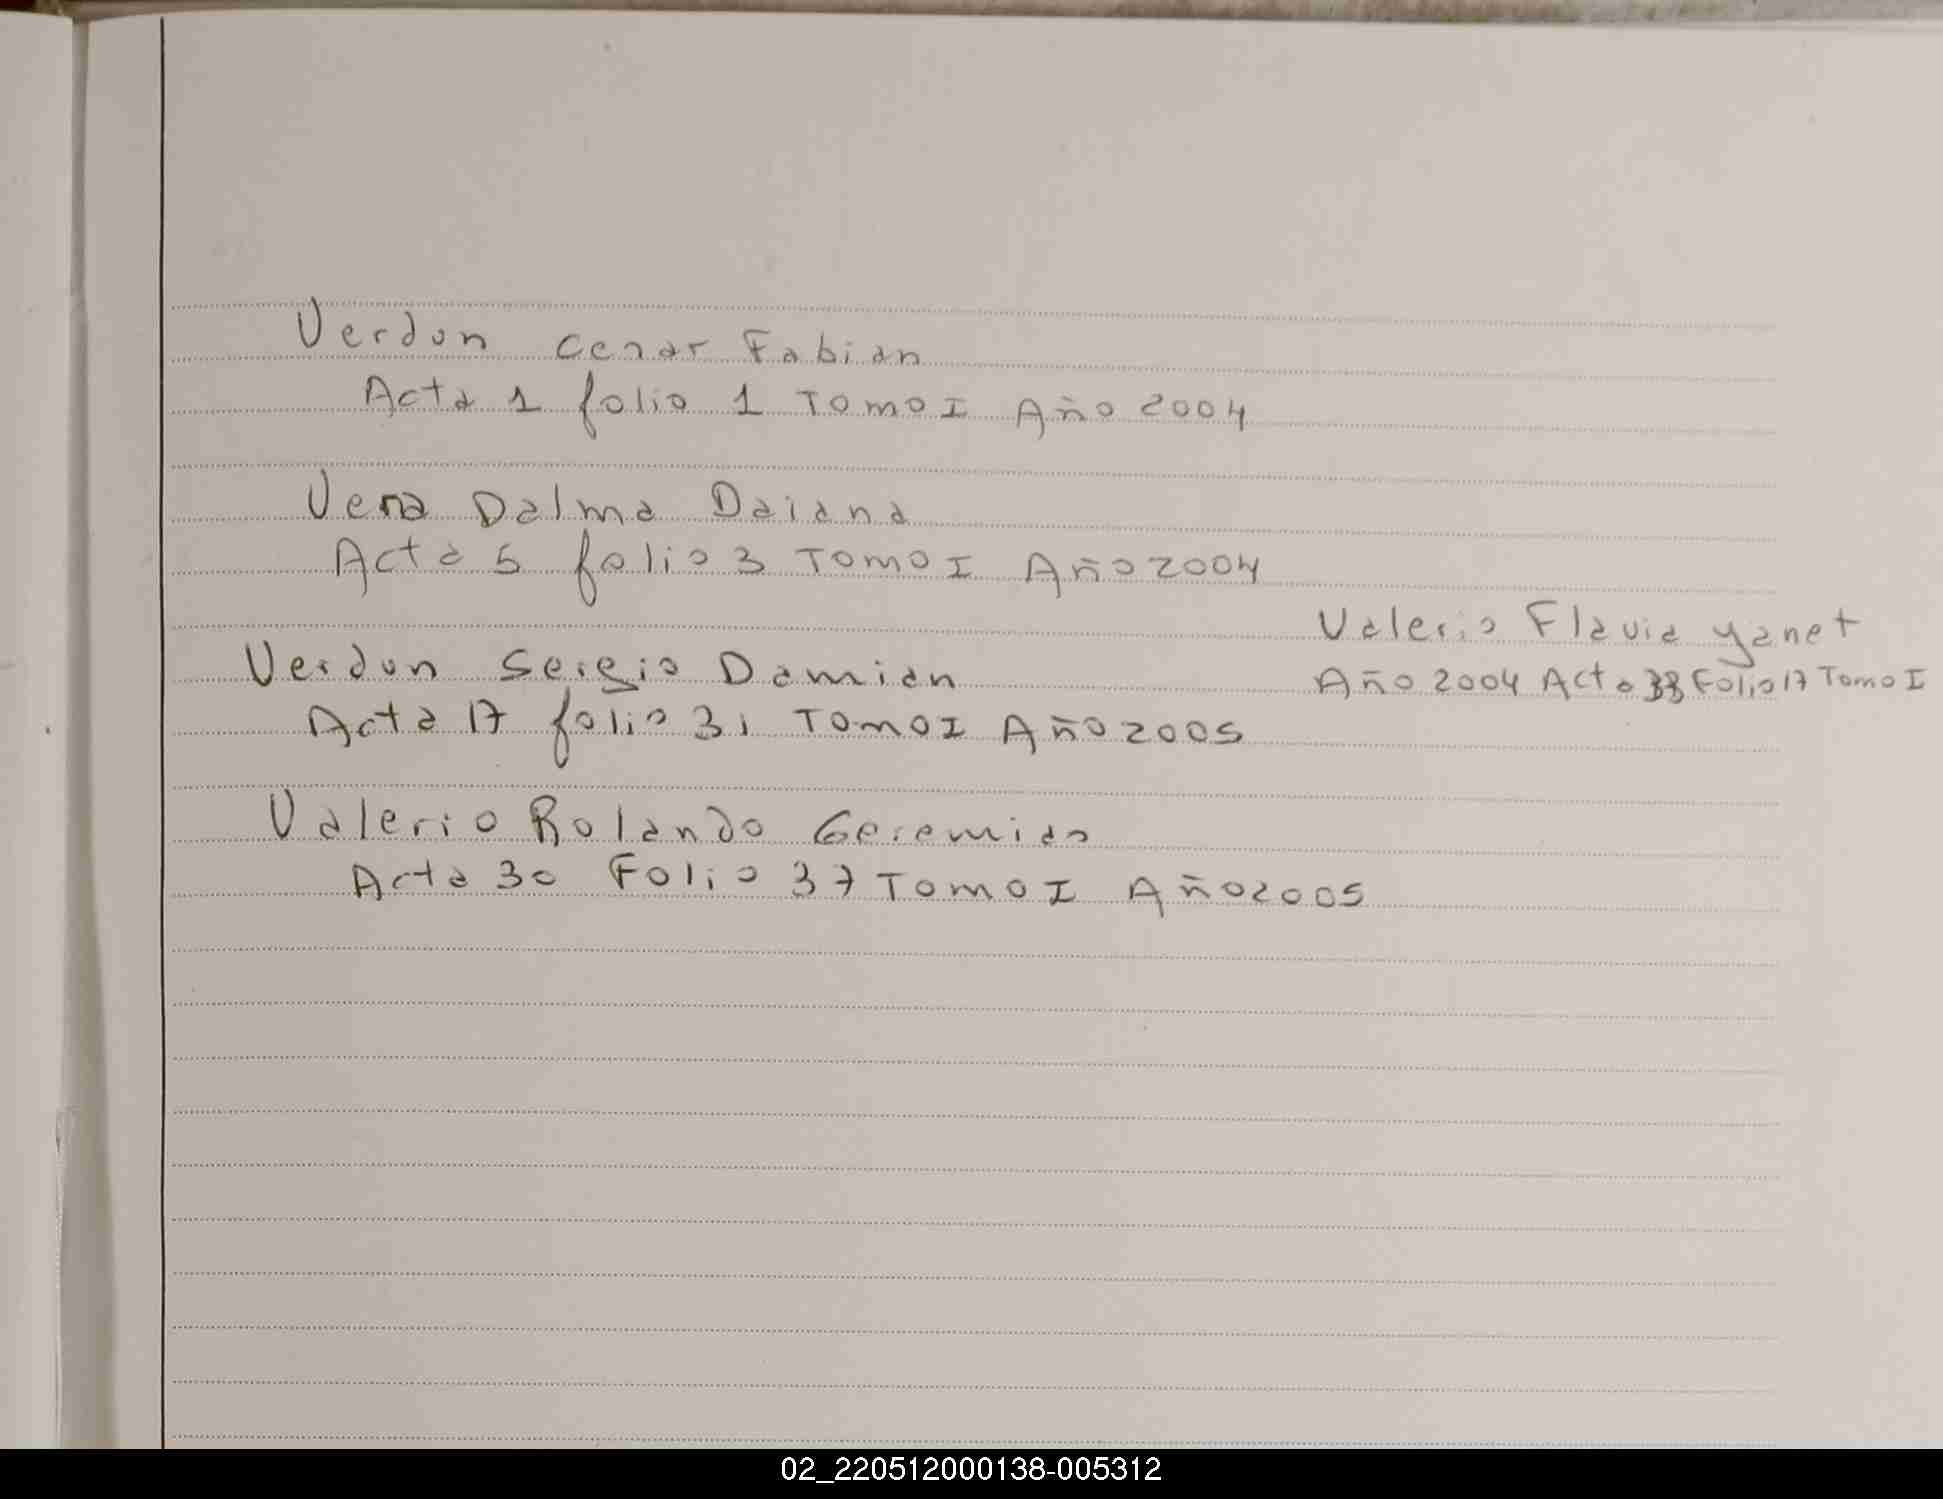 Verdun Cesar Fabian
Acta 1 folio 1 Tomo I Año 2004
Vera Dalma Daiana
Acta 5 folio 3 Tomo I Año 2004
Verdun Sergio Damian
Acta 17 folio 31 Tomo I Año 2005
Valerio Flavia yanet
Año 2004 Acta 33 Folio 17 Tomo I
Valerio Rolando Geremias
Acta 30 Folio 37 Tomo I Año 2005
02_220512000138-005312